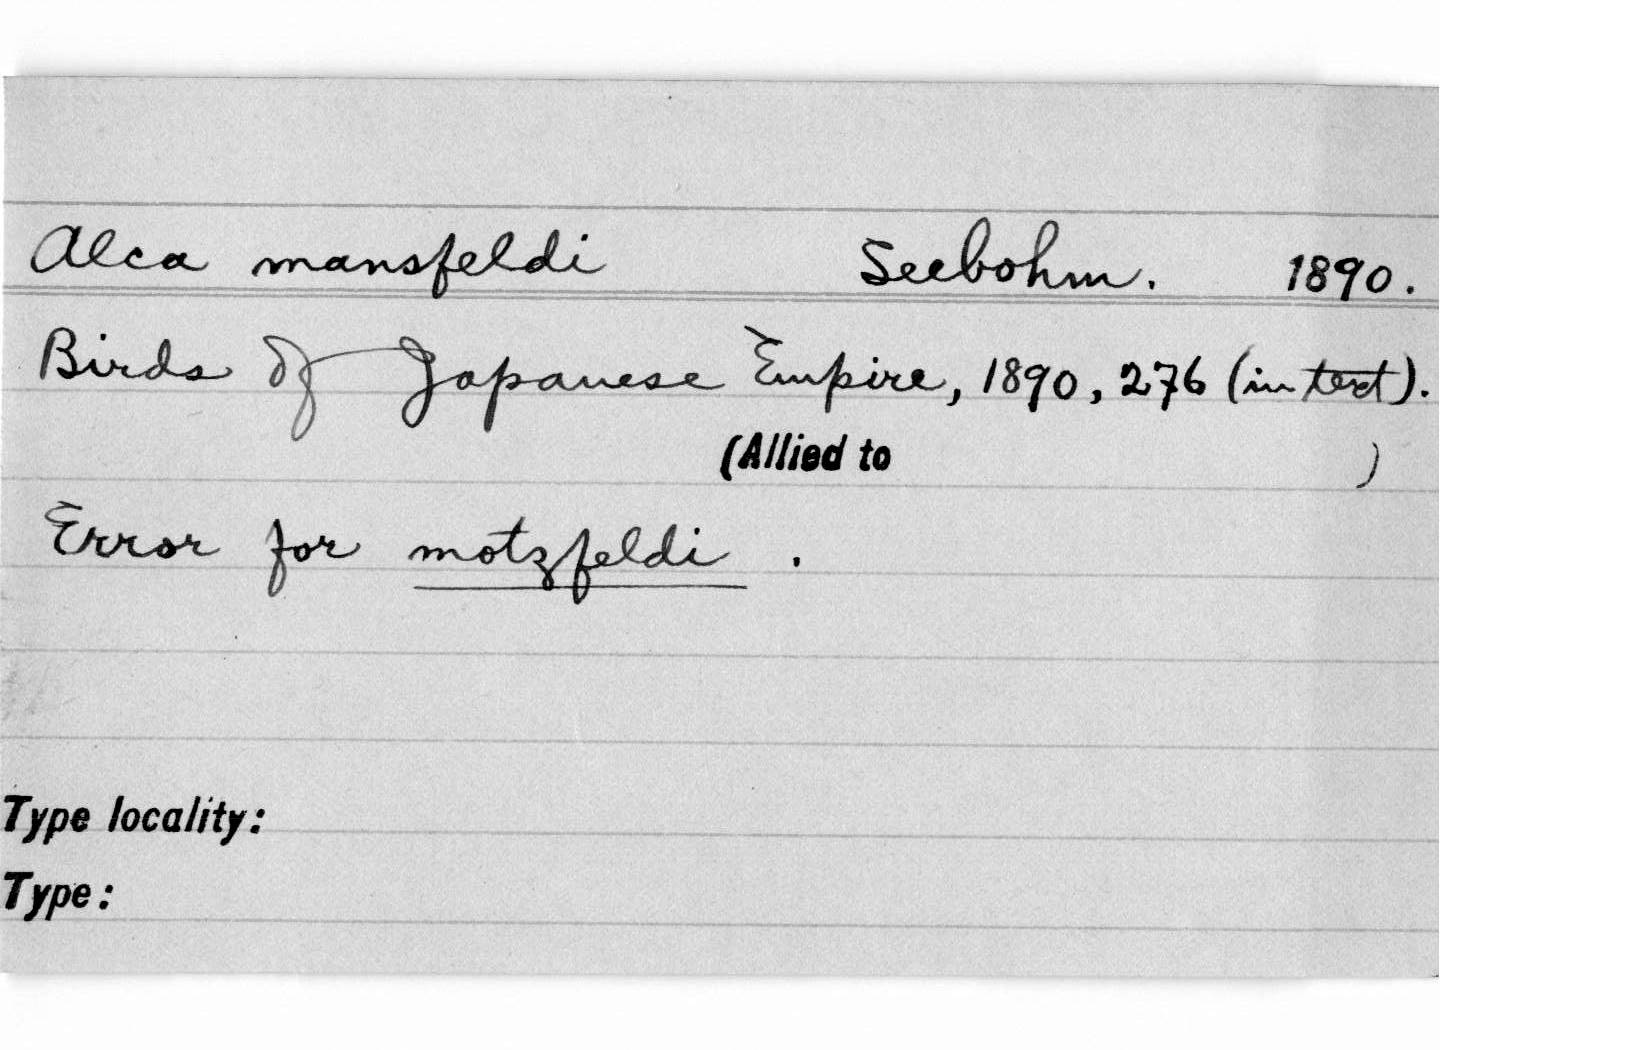 Alca mansfeldi Seebohm. 1890.
Birds of Japanese Empire, 1890, 276 (in text).
(Allied to )
Error for motzfeldi .
Type locality:
Type: